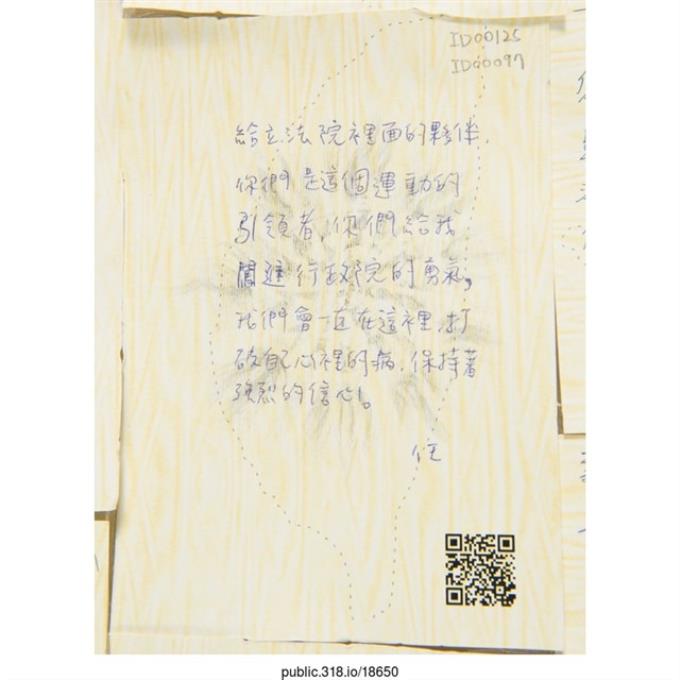 ID00125
ID00097
給立法院裡面的夥伴,
你們是這個運動的
引領者,你們給我
闖進行政院的勇氣,
我們會一直在這裡,打
破自己心裡的病,保持著
強烈的信心。
public.318.io/18650